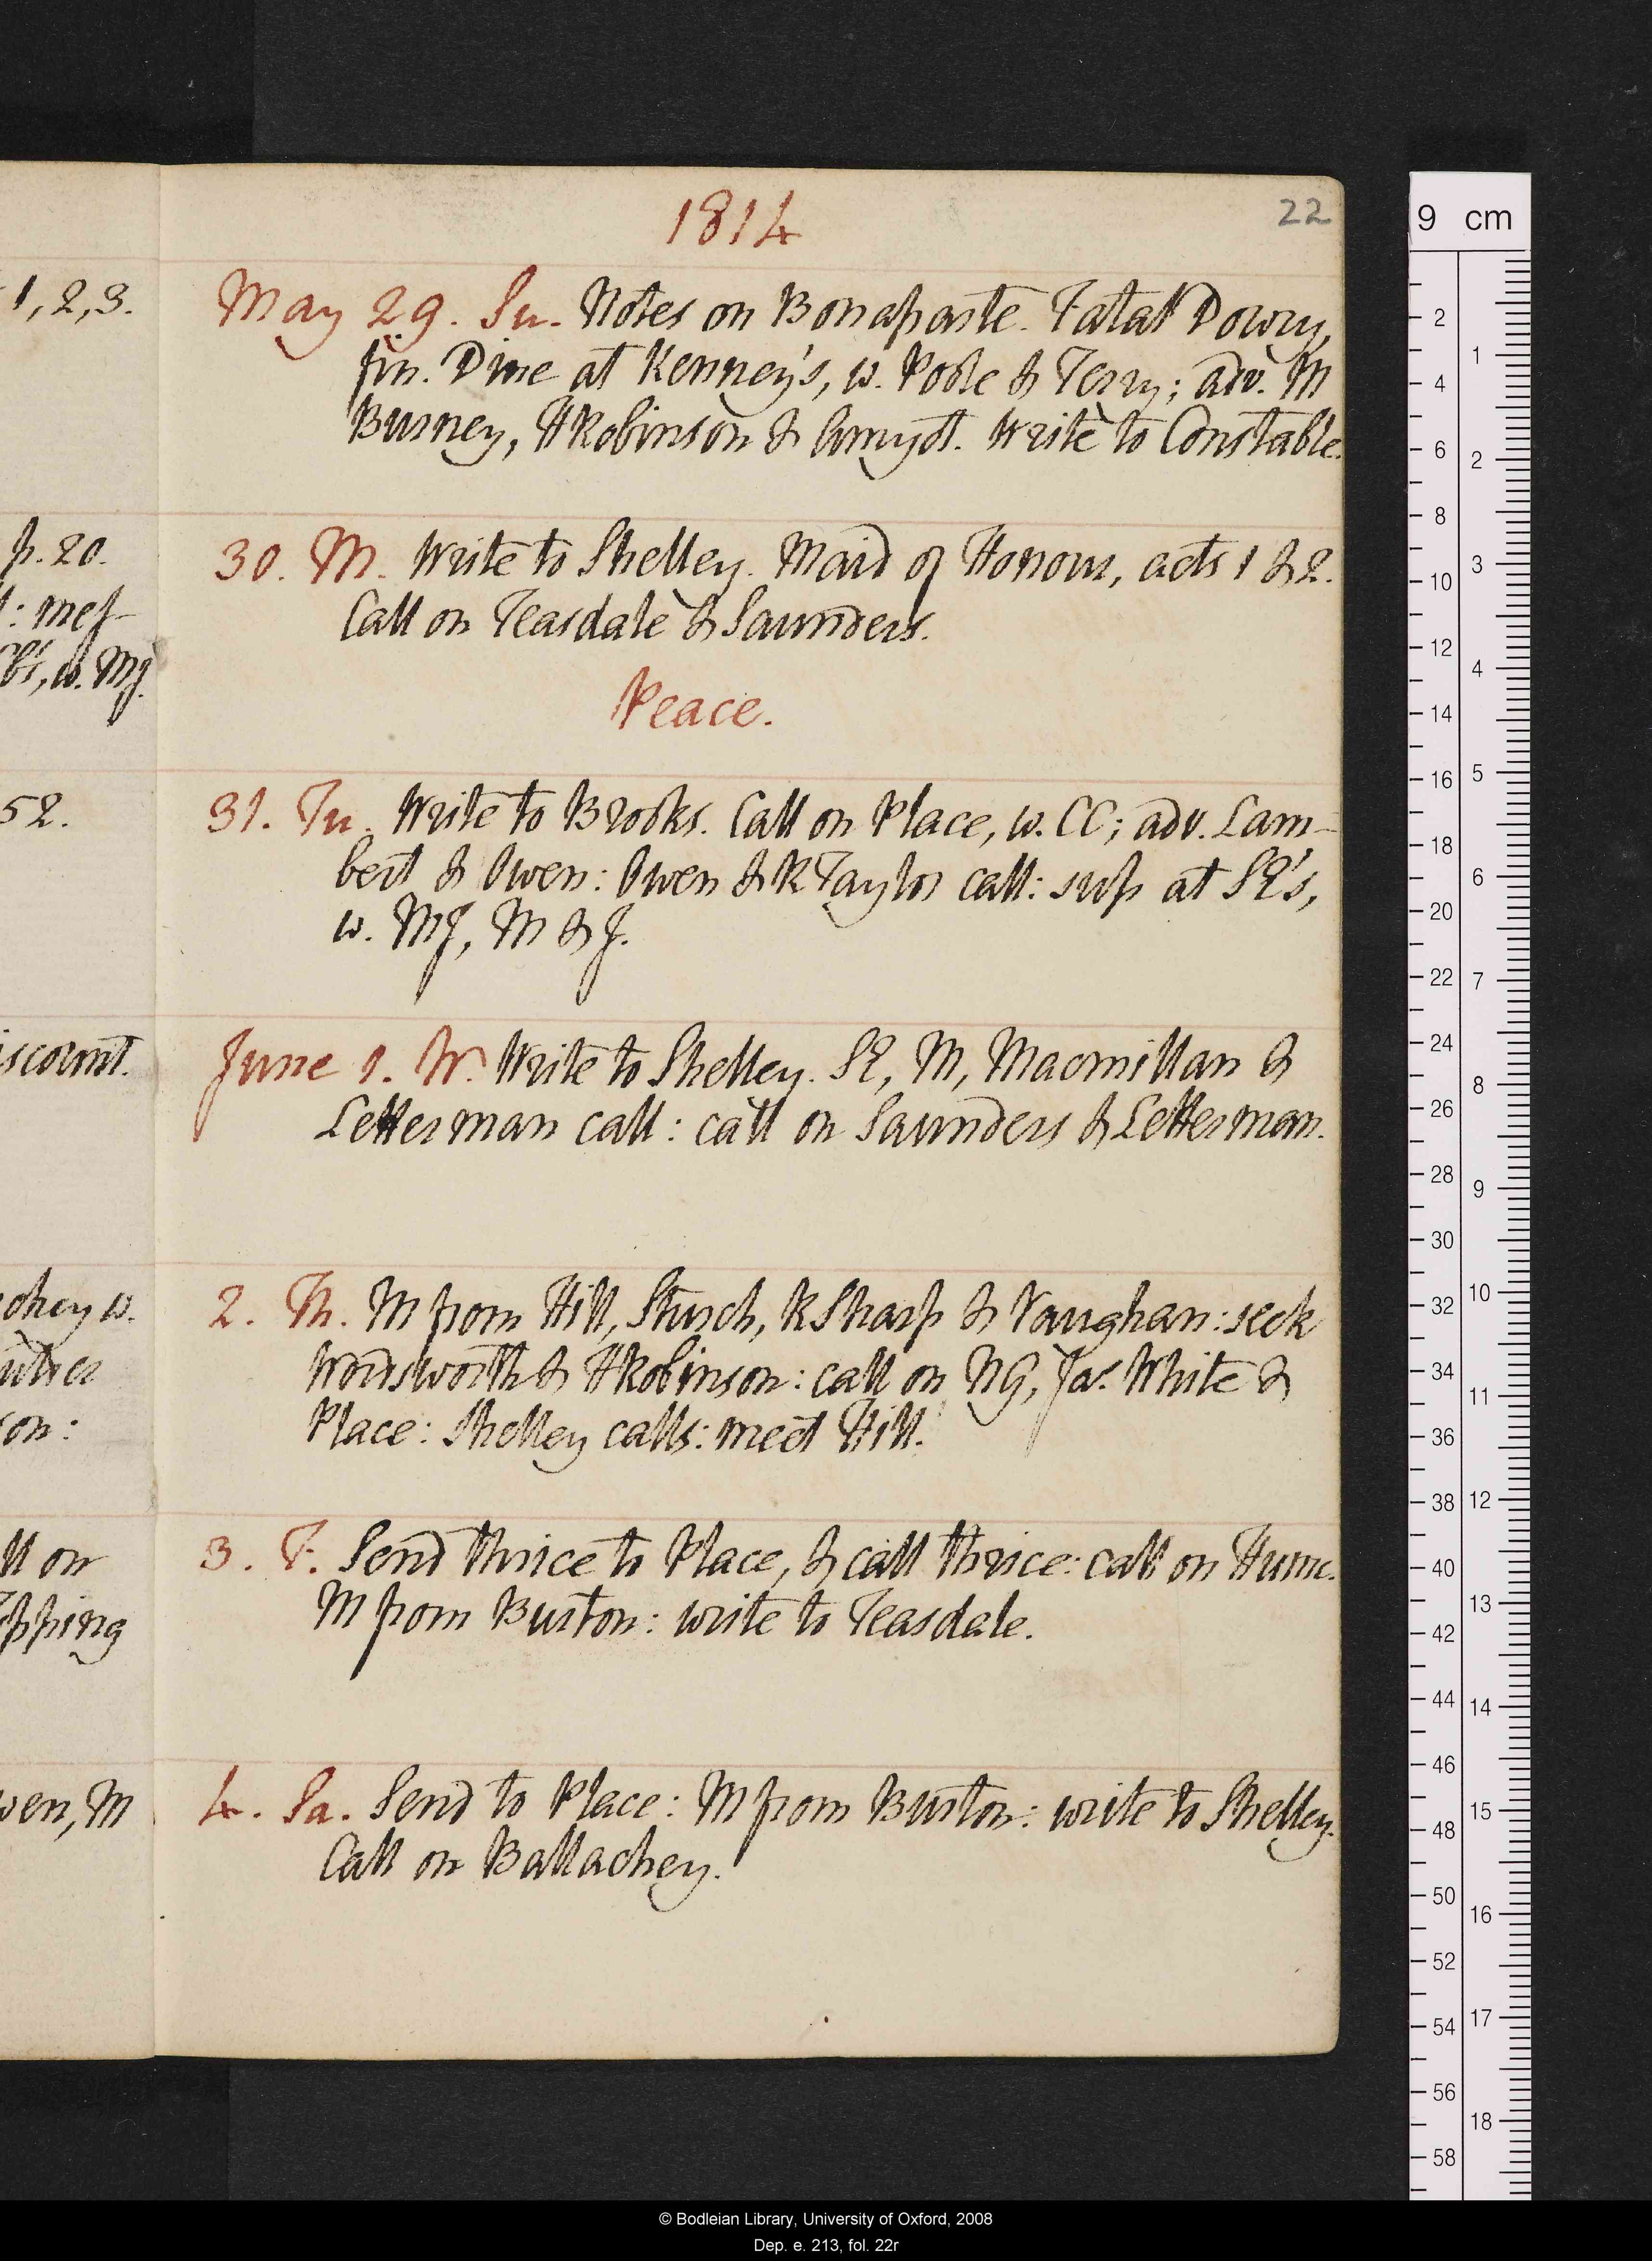 1814
22
1, 2, 3.
May 29. Su. Notes on Bonaparte. Fatal Dowry,
fin. Dine at Kenney's, w. Poole & Terry; adv. M
Burney, HRobinson & Amyot. Write to Constable.
p. 20.
: mess
w. MJ.
30. M. Write to Shelley. Maid of Honour, acts 1 & 2.
Call on Teasdale & Saunders.
Peace.
52.
31. Tu. Write to Brooks. Call on Place, w. CC; adv. Lam-
bert & Owen: Owen & RTaylor call: sup at SE's,
w. MJ, M & J.
iscount.
June 1. W. Write to Shelley. SE, M, Macmillan &
Letterman call: call on Saunders & Letterman.
chey w.
on:
2. Th. M from Hill, Sturch, RSharp & Vaughan: seek
Wordsworth & HRobinson: call on NG, Jas. White &
Place: Shelley calls: meet Hill.
ll on
pping
3. F. Send thrice to Place, & call thrice: call on Hume.
M from Burton: write to Teasdale.
wen, M
4. Sa. Send to Place: M from Burton: write to Shelley.
Call on Ballachey.
9 cm
2 4 6 8 10 12 14 16 18 20 22 24 26 28 30 32 34 36 38 40 42 44 46 48 50 52 54 56 58
1 2 3 4 5 6 7 8 9 10 11 12 13 14 15 16 17 18
© Bodleian Library, University of Oxford, 2008
Dep. e. 213, fol. 22r